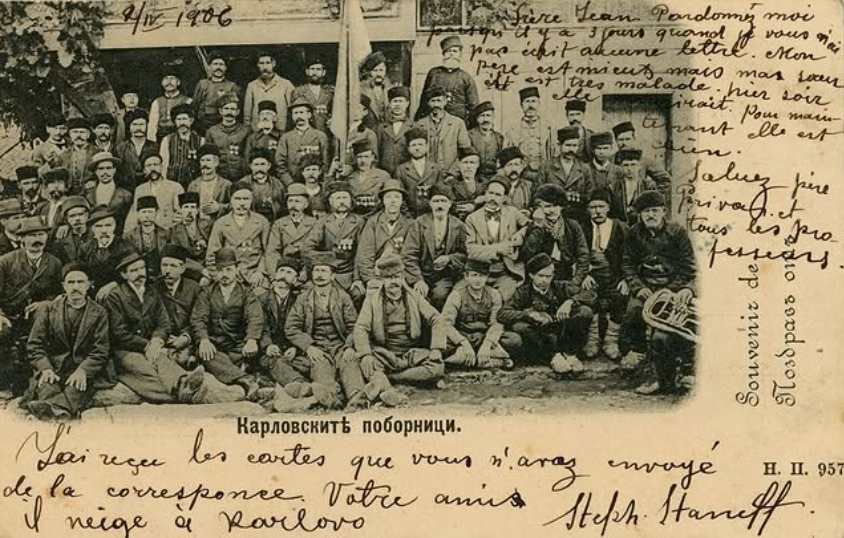 8/IV 1906
Frère Jean. Pardonnez moi
puisqu'il y a 3 jours quand je vous n'ai
pas écrit aucune lettre. Mon
père est mieux mais mas sœur
est est très malade. hier soir
elle
tenant elle est
bien.
Saluez père
Privat et
tous les pro-
fesseurs.
Souvenir de
Поздравъ отъ
Карловскитѣ поборници.
J'ai reçu les cartes que vous n'avaz envoyé
de la corresponce. Votre amis
il neige à Karlovo
Steph. Staneff.
Н. П. 957